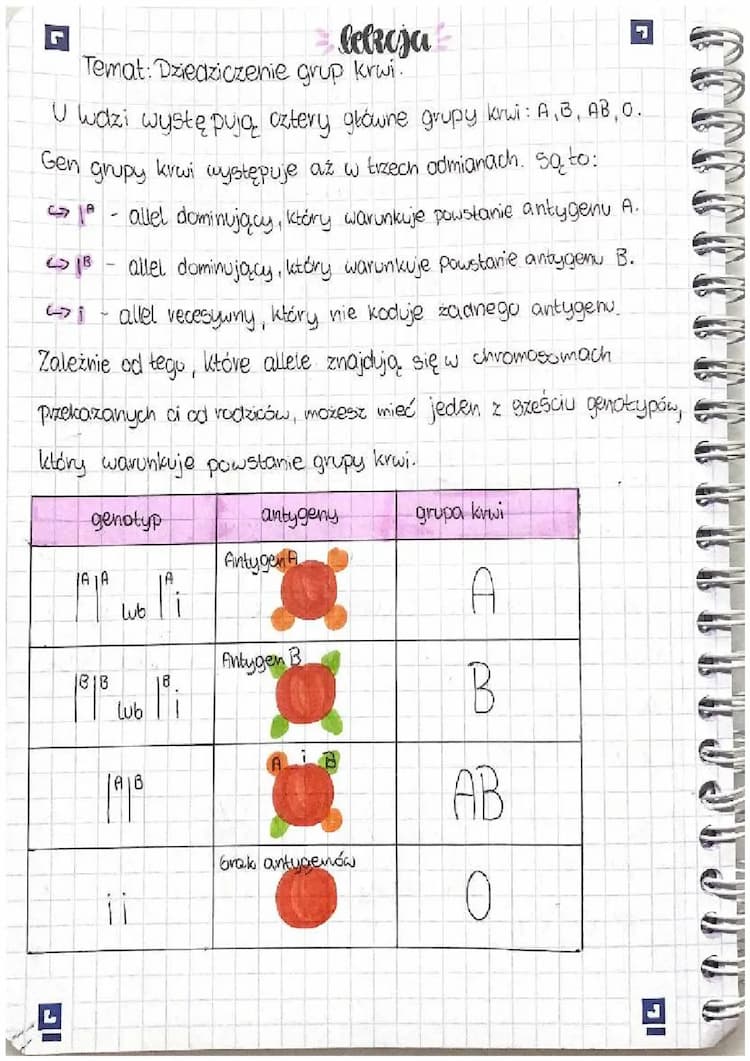 lekcja
Temat: Dziedziczenie grup krwi.
U ludzi występują cztery główne grupy krwi: A, B, AB, O.
Gen grupy krwi występuje aż w trzech odmianach. Są to:
↪ Iᴬ - allel dominujący, który warunkuje powstanie antygenu A.
↪ Iᴮ - allel dominujący, który warunkuje powstanie antygenu B.
↪ i - allel recesywny, który nie koduje żadnego antygenu.
Zależnie od tego, które allele znajdują się w chromosomach
przekazanych ci od rodziców, możesz mieć jeden z sześciu genotypów,
który warunkuje powstanie grupy krwi.
genotyp antygeny grupa krwi
Iᴬ Iᴬ lub Iᴬ i Antygen A A
Iᴮ Iᴮ lub Iᴮ i Antygen B B
Iᴬ Iᴮ A i B AB
i i Brak antygenów O